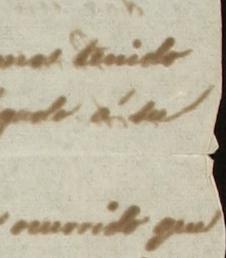 mos tenido
gado á su
ocurrido que